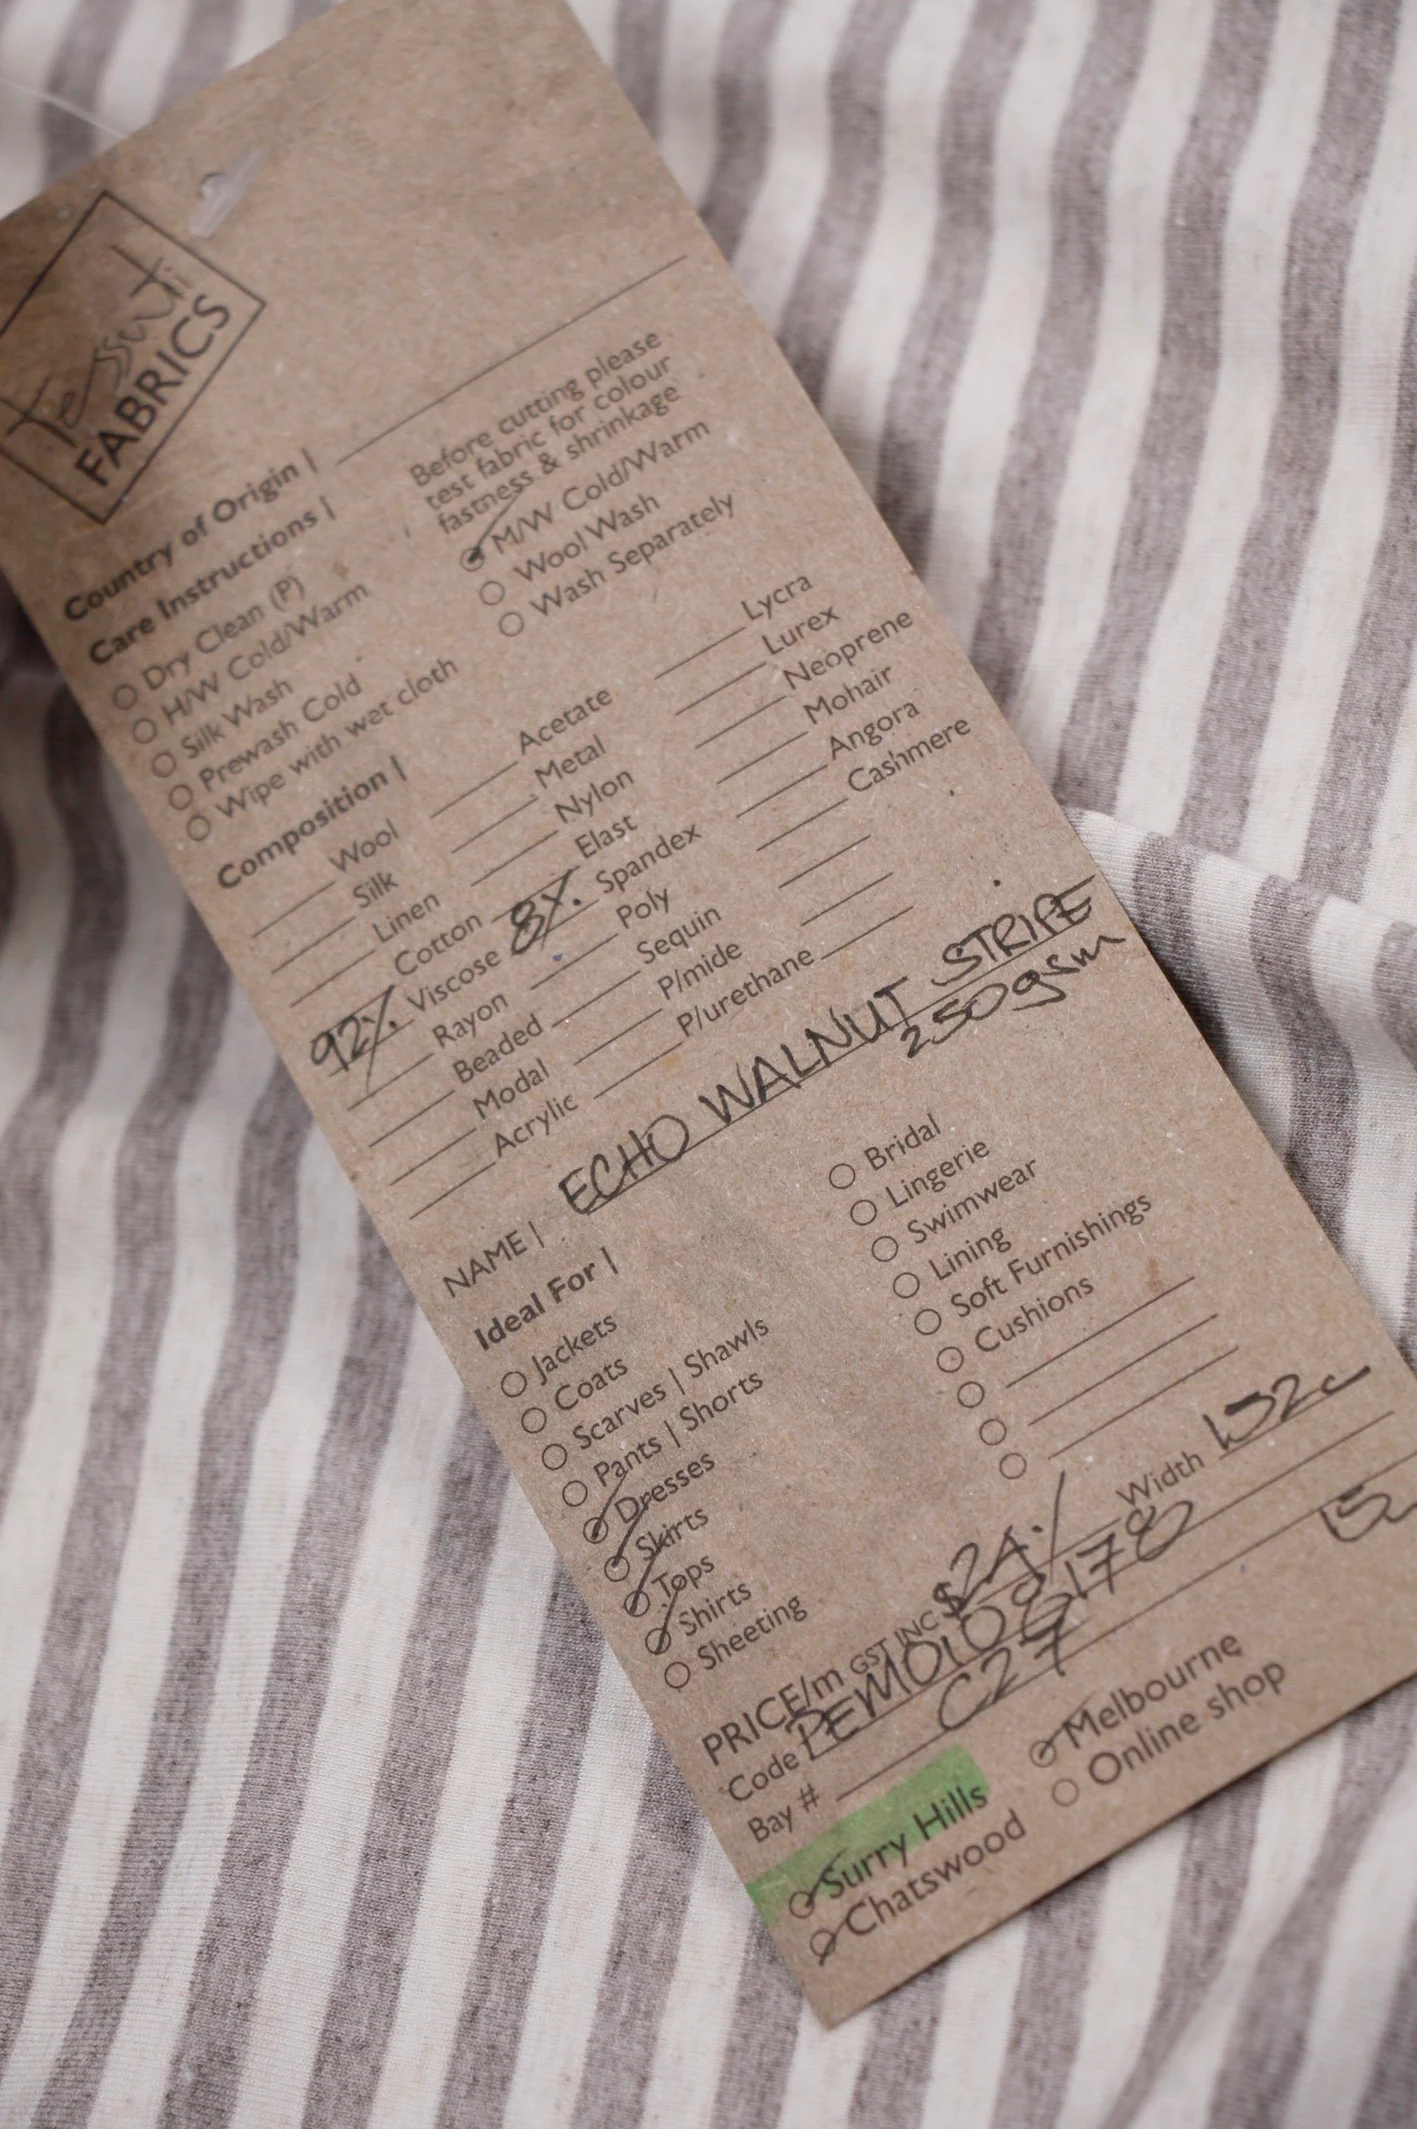 Tessuti
FABRICS
Country of Origin |
Care Instructions |
Dry Clean (P)
H/W Cold/Warm
Silk Wash
Prewash Cold
Wipe with wet cloth
Before cutting please
test fabric for colour
fastness & shrinkage
M/W Cold/Warm
Wool Wash
Wash Separately
Composition |
Wool
Silk
Linen
Cotton
92% Viscose
Rayon
Beaded
Modal
Acrylic
Acetate
Metal
Nylon
Elast
8% Spandex
Poly
Sequin
P/mide
P/urethane
Lycra
Lurex
Neoprene
Mohair
Angora
Cashmere
NAME | ECHO WALNUT STRIPE
250gsm
Ideal For |
Jackets
Coats
Scarves | Shawls
Pants | Shorts
Dresses
Skirts
Tops
Shirts
Sheeting
Bridal
Lingerie
Swimwear
Lining
Soft Furnishings
Cushions
PRICE/m GST INC $24. Width 152c
Code
Bay # C27
Surry Hills
Chatswood
Melbourne
Online shop